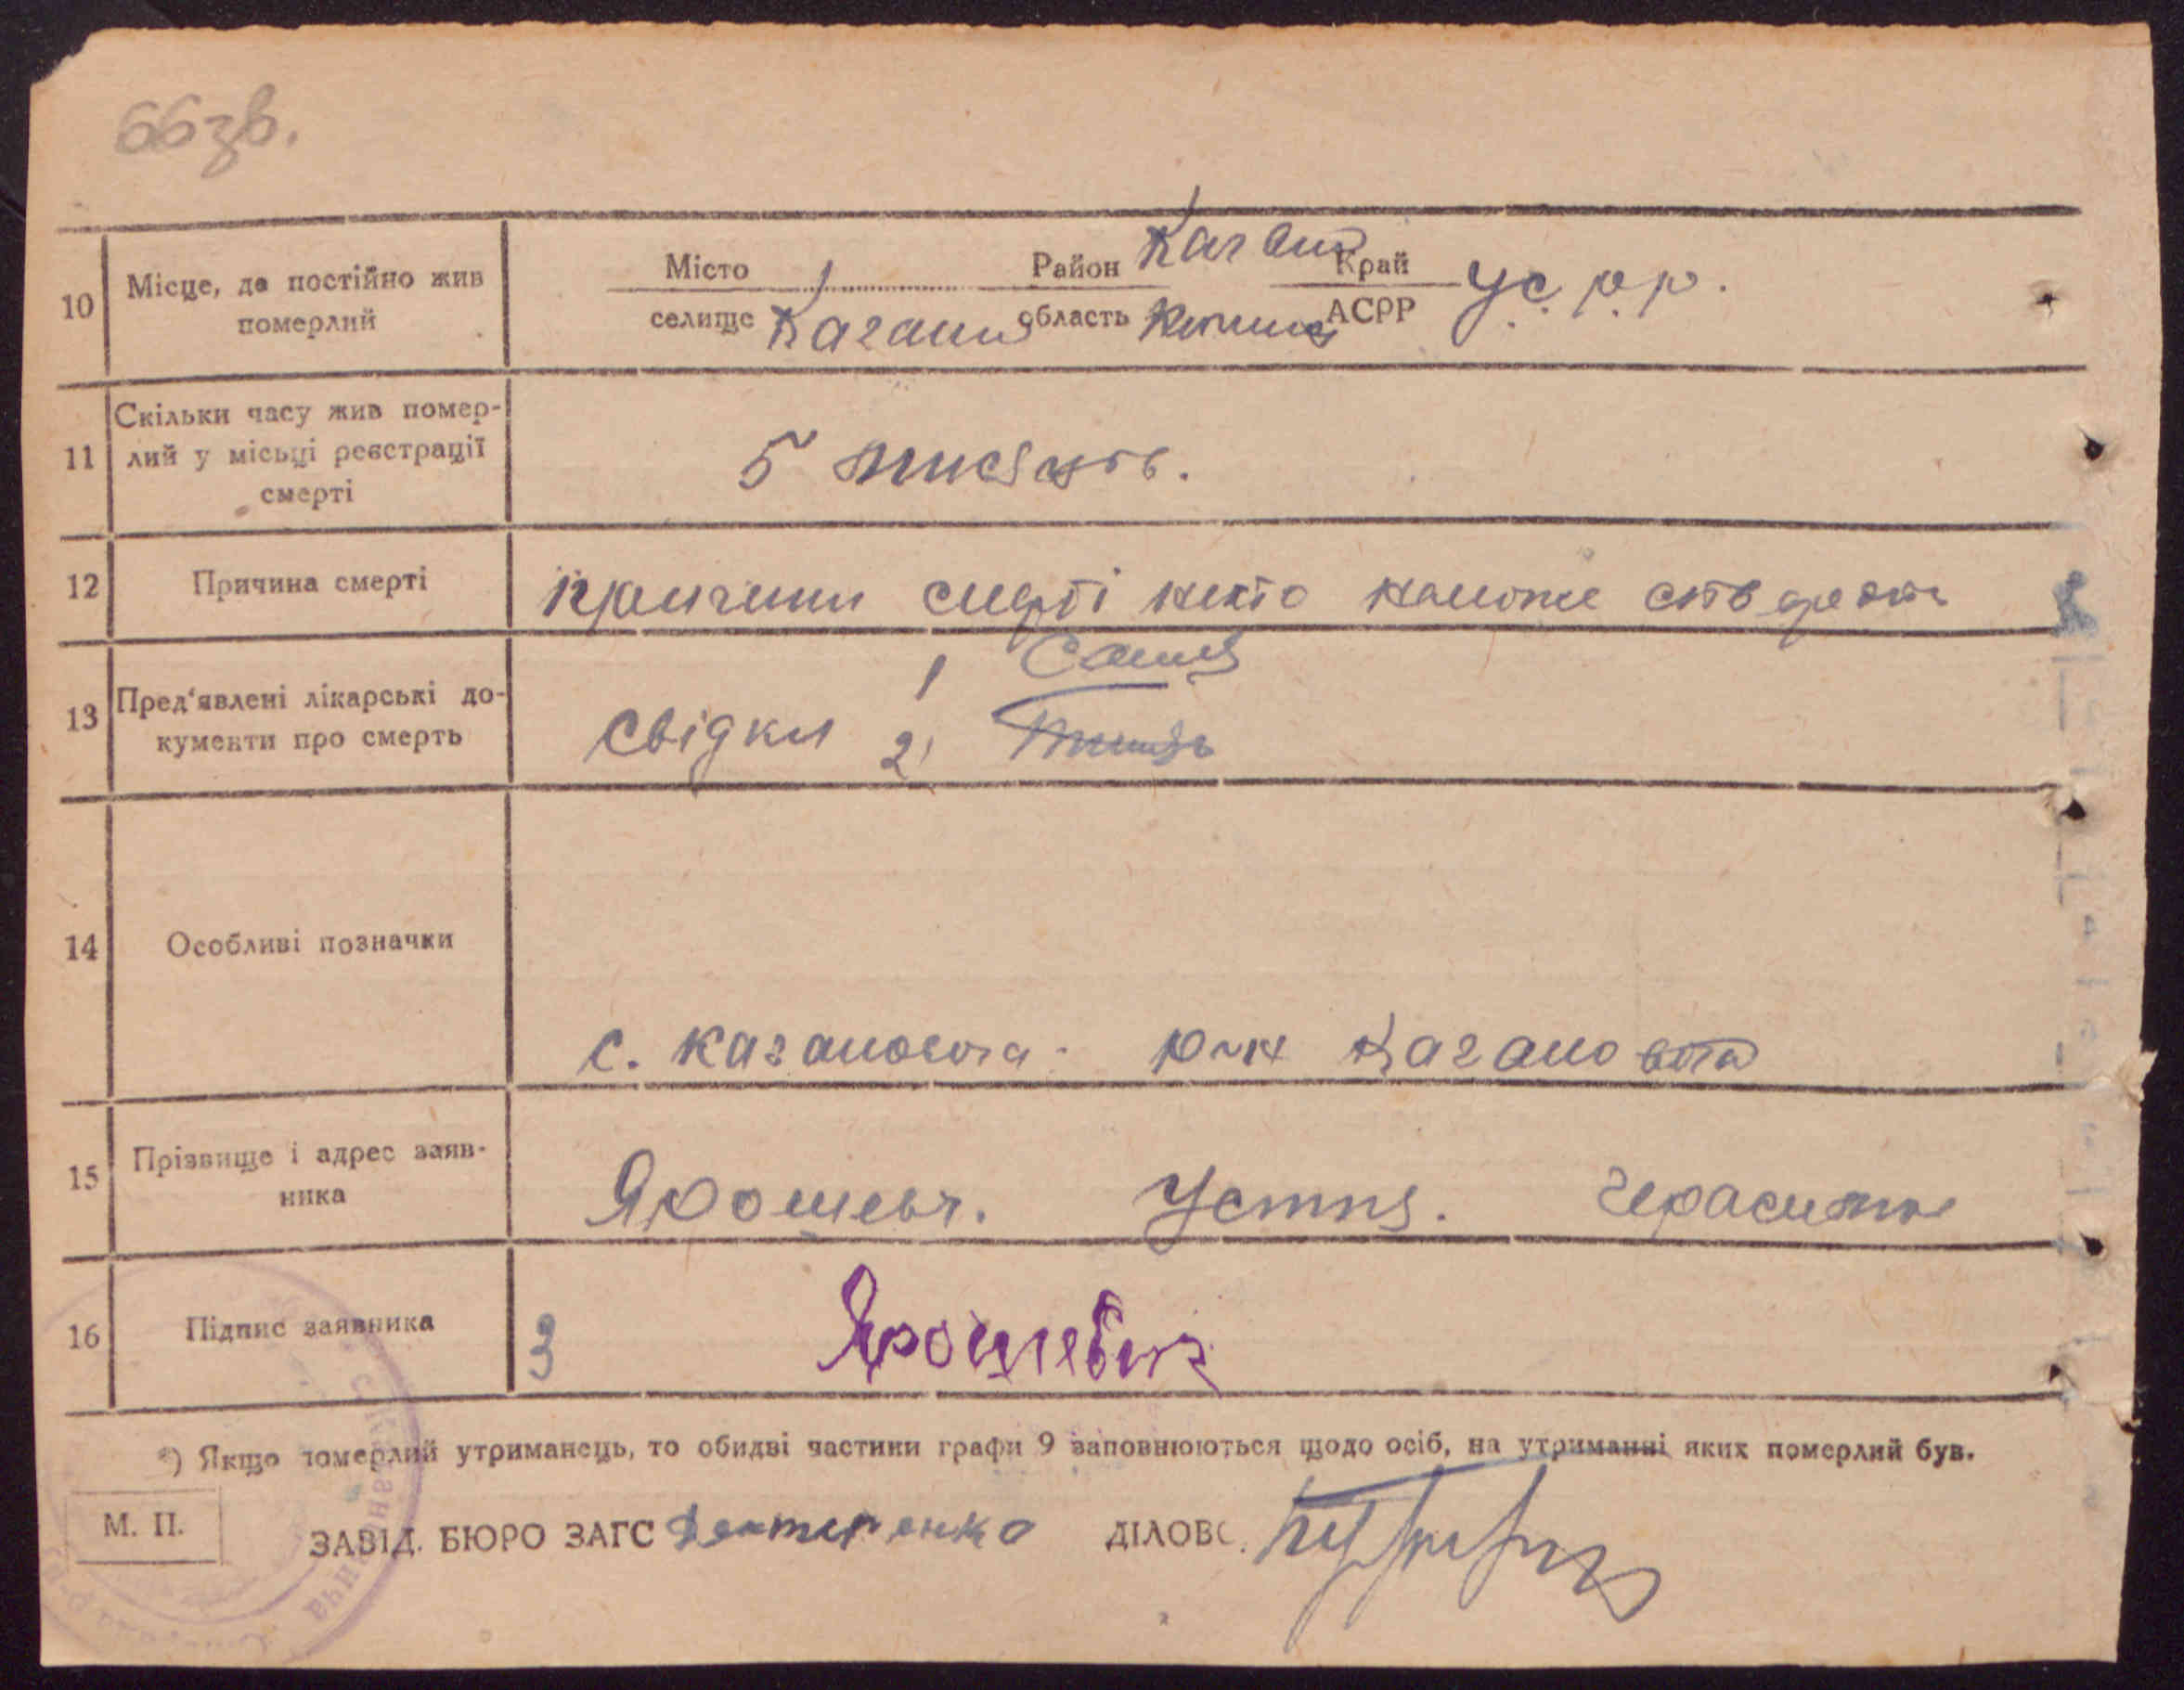 66 зв.
10 Місце, де постійно жив померлий
Місто Район Каган Край УСРР.
селище Каган область АСРР
11 Скільки часу жив помер-
лий у місьці реєстрації
смерті
5 місяців.
12 Причина смерті
причини смерті нихто не може
13 Пред'явлені лікарські до-
кументи про смерть
Свідки 1
2)
14 Особливі позначки
с. Кагановича р-н Кагановича
15 Прізвище і адрес заяв-
ника
Ярошевич. Устия. Герасимов
16 Підпис заявника
З Ярошевич
*) Якщо померлий утриманець, то обидві частини графи 9 заповнюються щодо осіб, на утриманні яких померлий був.
М. П.
ЗАВІД. БЮРО ЗАГС ДІЛОВ.